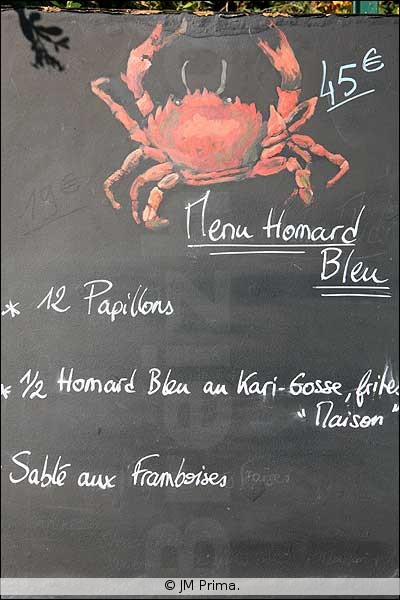 45€
19€
Menu Homard
Bleu
* 12 Papillons
* 1/2 Homard Bleu au Kari-Gosse, frites
"Maison"
Sablé aux Framboises
© JM Prima.